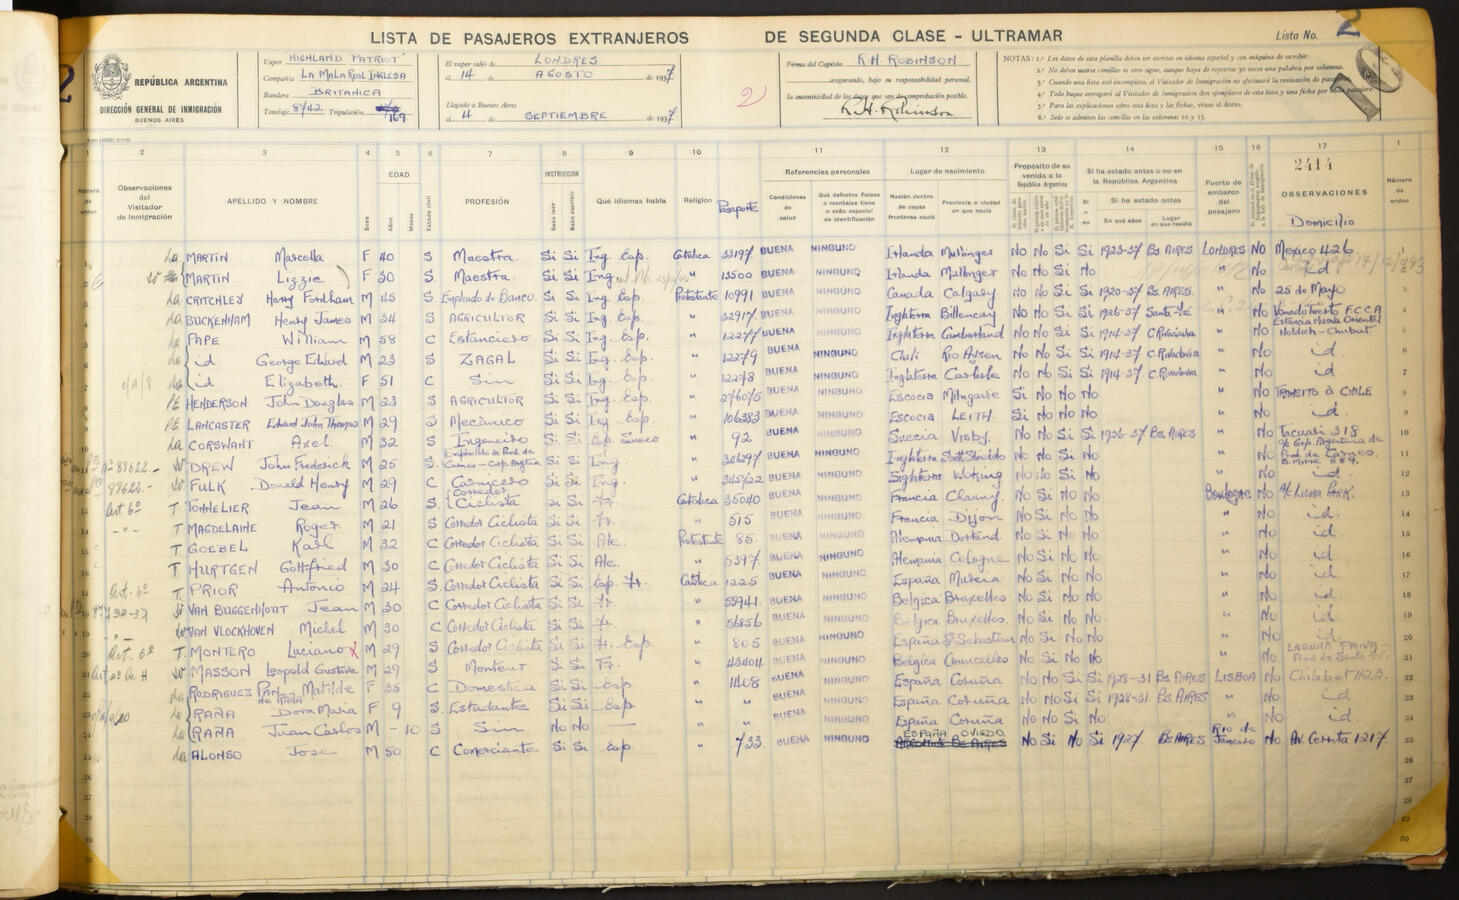 LISTA DE PASAJEROS EXTRANJEROS DE SEGUNDA CLASE - ULTRAMAR
Lista No. 2
REPÚBLICA ARGENTINA
DIRECCIÓN GENERAL DE INMIGRACIÓN
BUENOS AIRES
Vapor HIGHLAND PATRIOT
Compañía LA MALA REAL INGLESA
Bandera BRITANICA
Tonelaje 8742 Tripulación 169
El vapor salió de LONDRES
el 14 de AGOSTO de 1937
Llegado a Buenos Aires
el 4 SEPTIEMBRE de 1937
2
Firma del Capitán R.H. ROBINSON
asegurando, bajo su responsabilidad personal,
la autenticidad de los datos que son de comprobación posible.
R.H. Robinson
NOTAS: 1.ª Los datos de esta planilla deben ser escritos en idioma español y con máquina de escribir.
2.ª No deben usarse comillas ni otro signo, aunque haya de repetirse 30 veces una palabra por columna.
3.ª Cuando una lista esté incompleta, el Visitador de Inmigración no efectuará la revisación de pasajeros.
4.ª Todo buque entregará al Visitador de Inmigración dos ejemplares de esta lista y una ficha por cada pasajero.
5.ª Para las explicaciones sobre esta lista y las fichas, véase al dorso.
6.ª Solo se admiten las comillas en las columnas 10 y 15.
1 2 3 4 5 6 7 8 9 10 11 12 13 14 15 16 17 1
Número de orden
Observaciones del Visitador de Inmigración
APELLIDO Y NOMBRE
Sexo
EDAD
Años
Meses
Estado civil
PROFESIÓN
INSTRUCCION
Sabe leer
Sabe escribir
Qué idiomas habla
Religión
Pasaporte
Referencias personales
Condiciones de salud
Qué defectos físicos o mentales tiene o seña especial de identificación
Lugar de nacimiento
Nación dentro de cuyas fronteras nació
Provincia o ciudad en que nació
Propósito de su venida a la República Argentina
Si ha estado antes o no en la República Argentina
Si o no
Si ha estado antes
En qué años
Lugar en que residió
Puerto de embarco del pasajero
2414
OBSERVACIONES
Domicilio
Número de orden
La MARTIN Marcella F 40 S Maestra Si Si Ing. Esp. Católica 33197 BUENA NINGUNO Irlanda Mullingar No No Si Si 1923-37 Bs AIRES. LONDRES No Mexico 426
MARTIN Lizzie F 30 S. Maestra Si Si Ing " 13500 BUENA NINGUNO Irlanda Mullingar No No Si No " No id
La CRITCHLEY Harry Fordham M 45 S. Empleado de Banco. Si Si Ing. Esp. Protestante 10991 BUENA NINGUNO Canada Calgary No No Si Si 1920-37 Bs. AIRES. " No 25 de Mayo
La BUCKENHAM Henry James M 34 S AGRICULTOR Si Si Ing. Esp. " 32917 BUENA NINGUNO Inglaterra Billencay No No Si Si 1926-37 Santa-Fé " No Venado Tuerto F.C.C.A
La PAPE William M 58 C Estanciero Si Si Ing. Esp. " 12277 BUENA NINGUNO Inglaterra Cumberland No No Si Si 1914-37 C. Rivadavia " No Holdich - Chubut
La id George Edward M 23 S ZAGAL Si Si Ing. Esp. " 12279 BUENA NINGUNO Chili Rio Aysen No No Si Si 1914-37 C. Rivadavia " No id.
La id Elizabeth F 51 C Sin Si Si Ing. Esp. " 12278 BUENA NINGUNO Inglaterra Carlisle No No Si Si 1914-37. C. Rivadavia " No id
PE HENDERSON John Douglas M 23 S AGRICULTOR Si Si Ing. Esp. " 276075 BUENA NINGUNO Escocia Milngavie Si No No No " No TRANSITO à CHILE
PE LANCASTER Edward John Thompson M 29 S Mecànico Si Si Ing Esp. " 106383 BUENA NINGUNO Escocia LEITH. Si No No No " No id.
La CORSWANT Axel. M 32 S Ingeniero Si Si Esp. Sueco " 92 BUENA NINGUNO Suecia Visby. No No Si Si 1936-37 Bs. AIRES " No Tacuari 318
DREW John Frederick M 25 S. Empleado de Prod. de Carnes - Corp. Argtina Si Si Ing. " 346297 BUENA NINGUNO Inglaterra South Shields No No Si No " No c/o Corp. Argentina de Prod. de Carnes. B. Mitre 559.
88622.- FULK Donald Henry M 29 C Carnicero Si Si Ing. " 345722 BUENA NINGUNO Inglaterra Woking No No Si No " No id.
Art 6º T TONNELIER Jean M 26 S. Corredor Ciclista Si Si Fr. Católica 35040 BUENA NINGUNO Francia Clamny. No Si No No Boulogne No c/o Luna PARK.
- " - T MAGDELAINE Roger M 21 S Corredor Ciclista Si Si Fr. " 515 BUENA NINGUNO Francia Dijon No Si No No " No id.
T GOEBEL Karl M 32 C Corredor Ciclista Si Si Ale. Protestante 85. BUENA NINGUNO Alemania Dortand. No Si No No " No id.
T HURTGEN Gottfried M 30 C Corredor Ciclista Si Si Ale. " 5397. BUENA NINGUNO Alemania Cologne No Si No No " No id.
Art. 6º T PRIOR Antonio M 24 S. Corredor Ciclista Si Si Esp. Fr. Católica 1225 BUENA NINGUNO España Murcia No Si No No " No id.
VAN BUGGENHOUT Jean M 30 C Corredor Ciclista Si Si Fr. " 55941. BUENA NINGUNO Belgica Bruxelles No Si No No " No id.
VAN VLOCKHOVEN Michel M 30 C Corredor Ciclista Si Si Fr. " 56856 BUENA NINGUNO Belgica Bruxelles. No Si No No " No id.
Art. 6º T. MONTERO Luciano X M 29 S Corredor Ciclista Si Si Fr. Esp. " 805 BUENA NINGUNO España Sn Sebastian No Si No No " No id.
MASSON Leopold Gustave M 29 S Monteur. Si Si Fr. " BUENA NINGUNO Belgica Courcelles No Si No No " No LAGUNA PAIVA - Prov. de Santa Fé.
La RODRIGUEZ PAN de RAÑA Matilde F 35 C Domestica Si Si Esp. " 1408 BUENA NINGUNO España Coruña No No Si Si 1928-31 Bs. AIRES LISBOA No Chilabert 1123.
La RAÑA Dora Maria F 9 S. Estudiante Si Si Esp " " BUENA NINGUNO España Coruña No No Si Si 1928-31. Bs. AIRES " No id
La RAÑA Juan Carlos M - 10 S Sin No No — " " BUENA NINGUNO España Coruña No No Si No " No id.
La ALONSO Jose M 50 C Comerciante Si Si Esp " 733. BUENA NINGUNO ESPAÑA OVIEDO No Si No Si 1927 Bs AIRES Rio de Janeiro No Av. Cerrito 1217